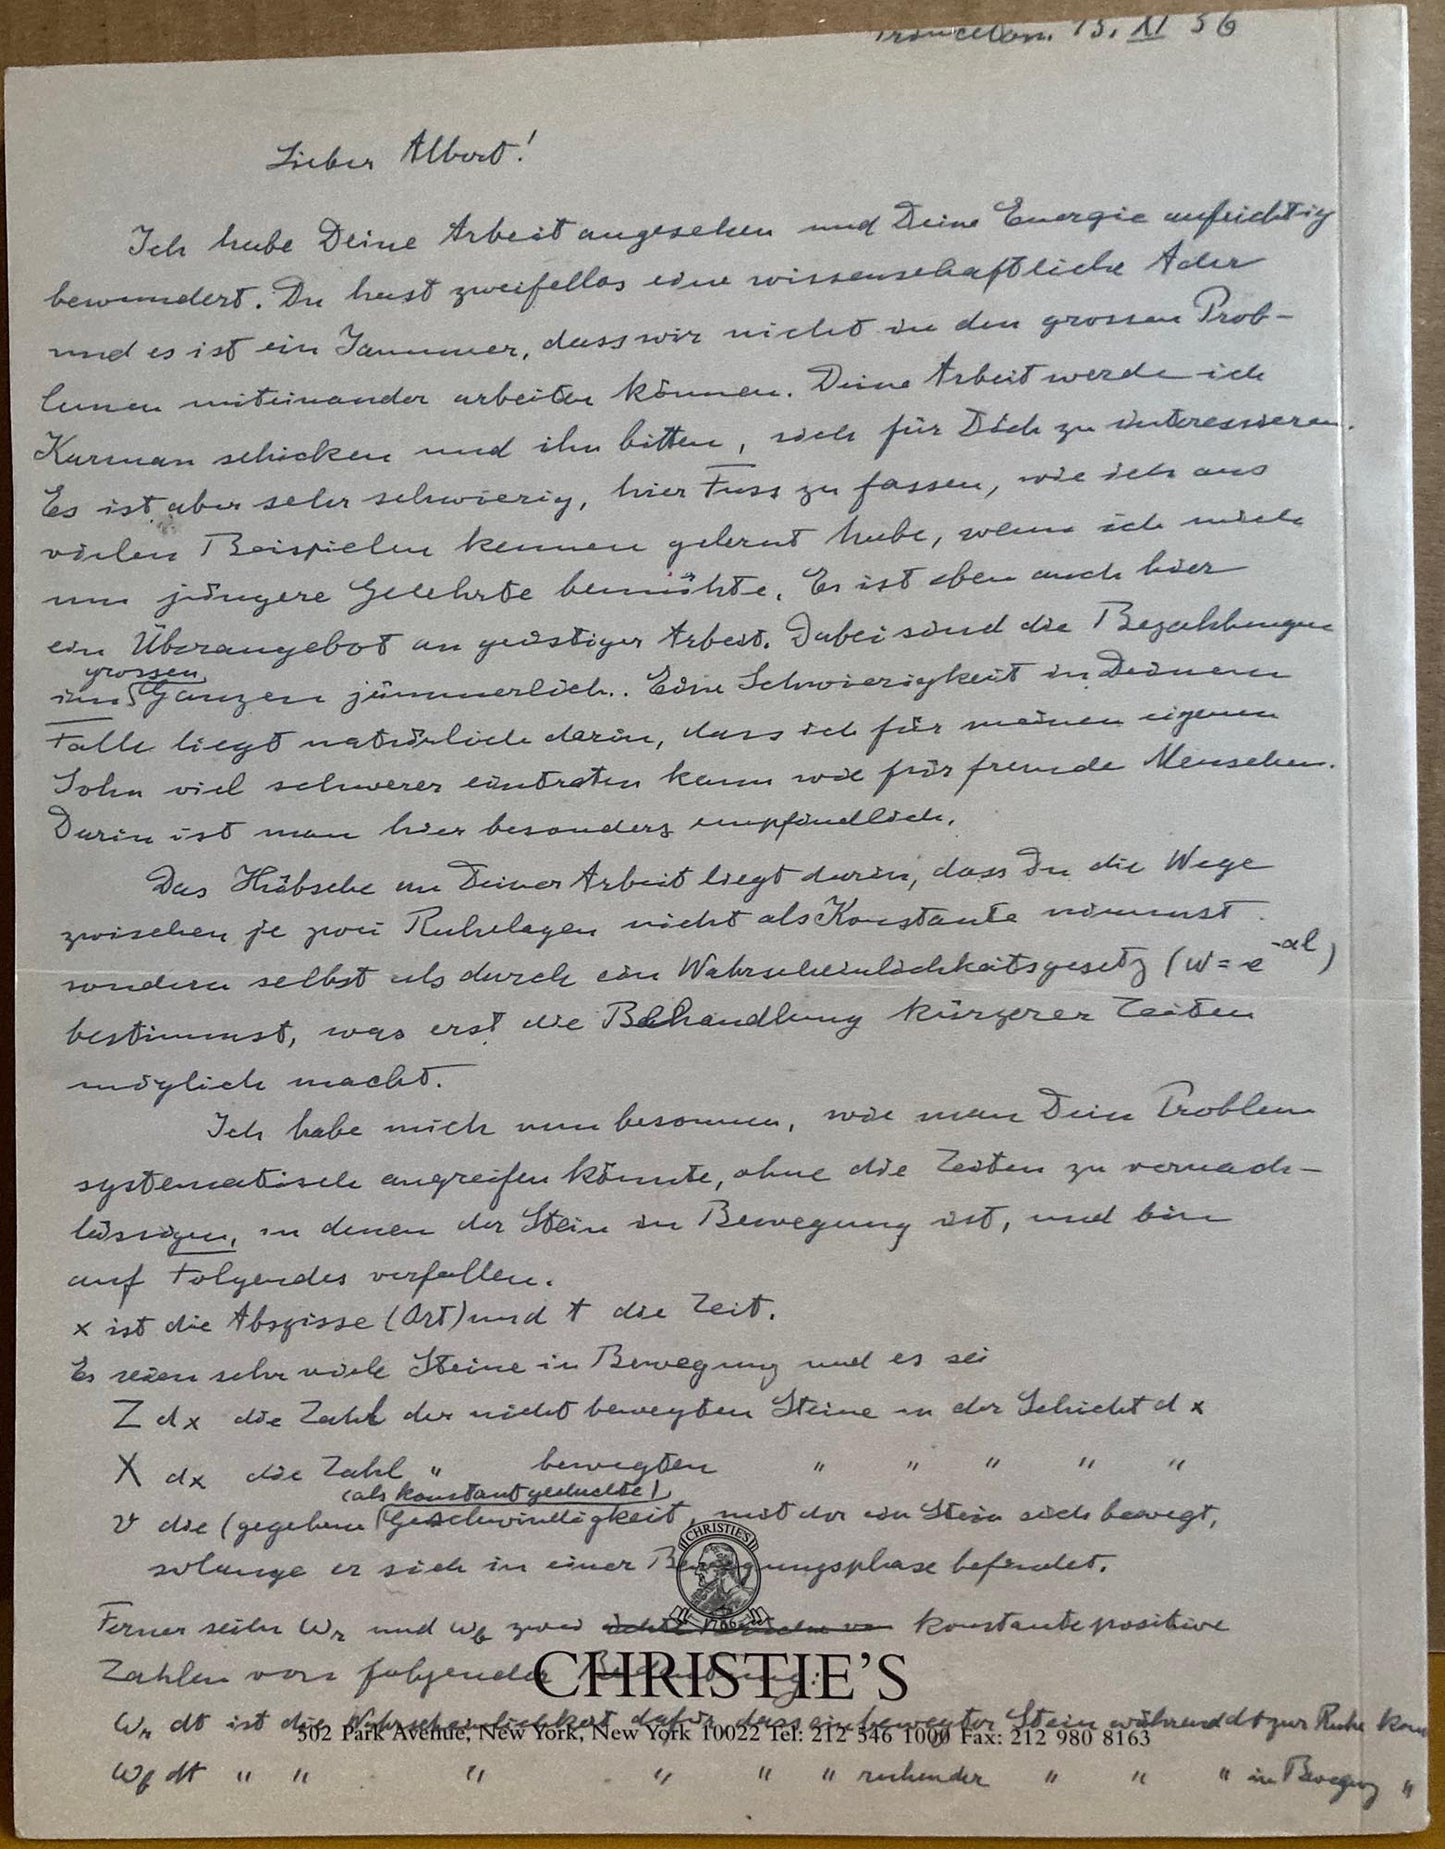 Princeton. 15. XI 36
Lieber Albert!
Ich habe Deine Arbeit angesehen und Deine Energie aufrichtig
bewundert. Du hast zweifellos eine wissenschaftliche Ader
und es ist ein Jammer, dass wir nicht in den grossen Prob-
lemen miteinander arbeiten können. Deine Arbeit werde ich
Karman schicken und ihn bitten, sich für Dich zu interessieren.
Es ist aber sehr schwierig, hier Fuss zu fassen, wie ich aus
vielen Beispielen kennen gelernt habe, wenn ich mich
um jüngere Gelehrte bemühte. Es ist eben auch hier
ein Überangebot an geistiger Arbeit. Dabei sind die Bezahlungen
im grossen Ganzen jämmerlich. Eine Schwierigkeit in Deinem
Falle liegt natürlich darin, dass ich für meinen eigenen
Sohn viel schwerer eintreten kann wie für fremde Menschen.
Darin ist man hier besonders empfindlich.
Das Hübsche an Deiner Arbeit liegt darin, dass Du die Wege
zwischen je zwei Ruhelagen nicht als Konstante nimmst
sondern selbst als durch ein Wahrscheinlichkeitsgesetz (W = e^-αl)
bestimmst, was erst die Behandlung kürzerer Zeiten
möglich macht.
Ich habe mich nun besonnen, wie man Dein Problem
systematisch angreifen könnte, ohne die Zeiten zu vernach-
lässigen, in denen der Stein in Bewegung ist, und bin
auf Folgendes verfallen.
x ist die Abszisse (Ort) und t die Zeit.
Es seien sehr viele Steine in Bewegung und es sei
Z dx die Zahl der nicht bewegten Steine in der Schicht dx
X dx die Zahl " bewegten " " " " "
v die (gegebene (als konstant gedachte) Geschwindigkeit, mit der ein Stein sich bewegt,
solange er sich in einer Bewegungsphase befindet.
Ferner seien Wr und Wb zwei konstante positive
Zahlen von folgender Bedeutung:
CHRISTIE'S
1766
CHRISTIE'S
Wr dt ist die Wahrscheinlichkeit dafür, dass ein bewegter Stein während dt zur Ruhe kom
502 Park Avenue, New York, New York 10022 Tel: 212 546 1000 Fax: 212 980 8163
Wb dt " " " " " " ruhender " " " in Bewegung "